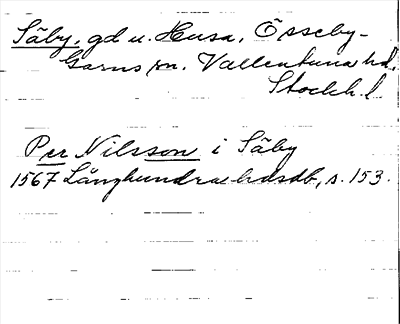 Säby, gd u. Husa, Össeby-
Garns sn. Vallentuna hd.
Stockh. l
Per Nilsson i Säby
1567 Långhundra hdsdb, s. 153.